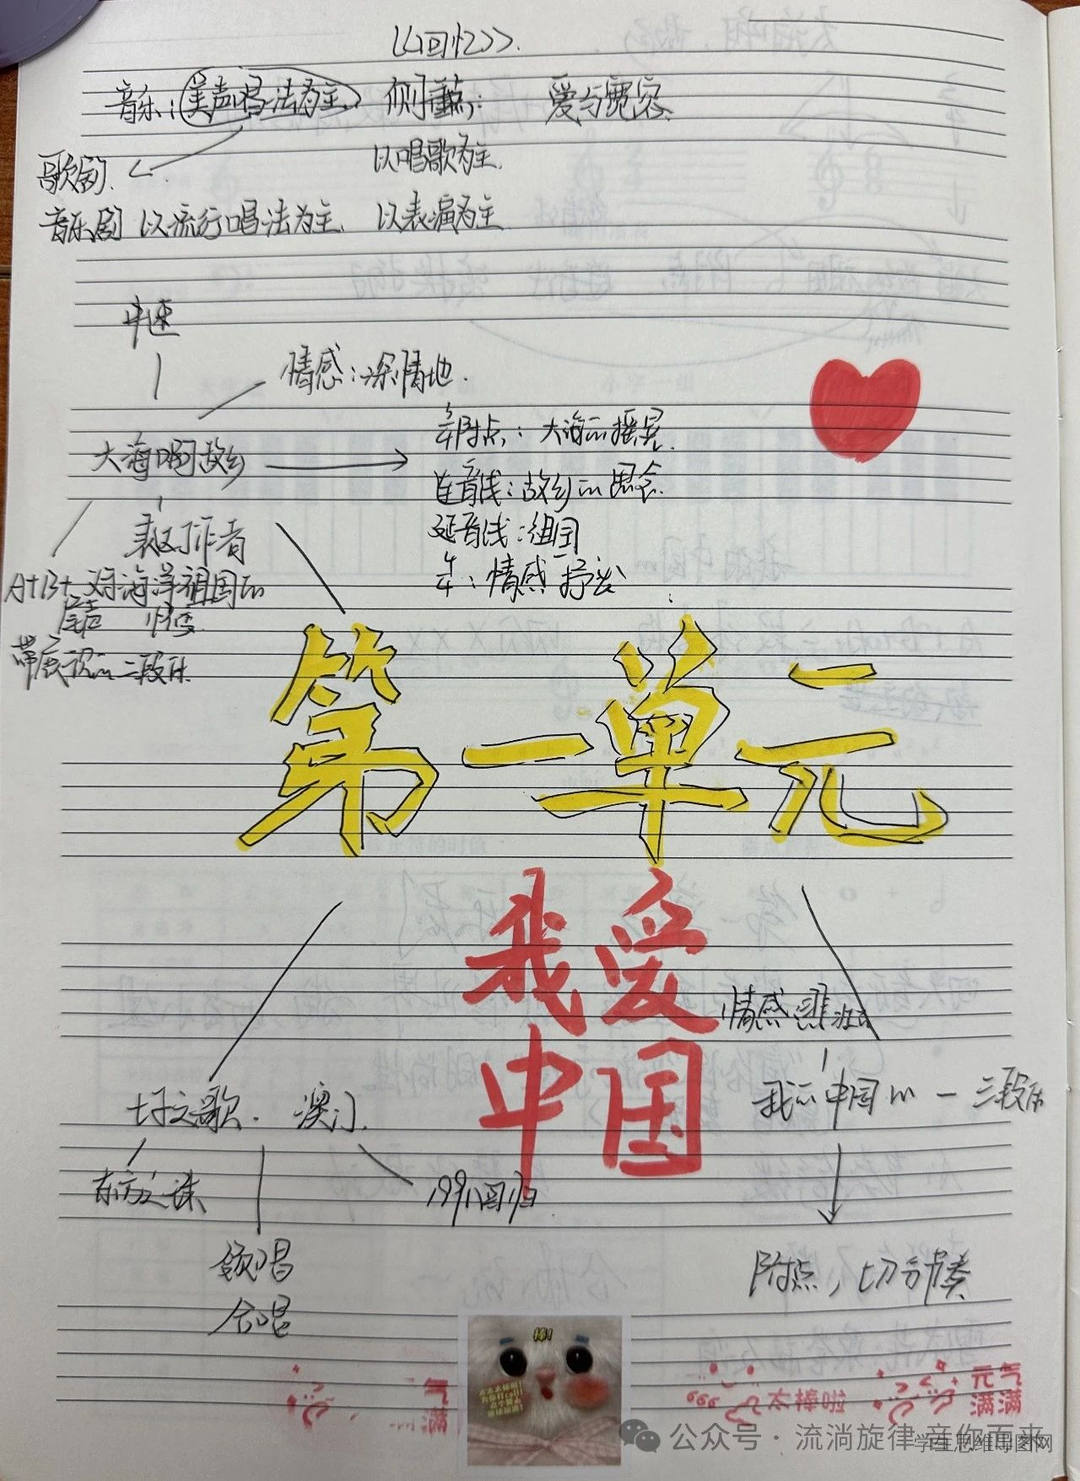 《回忆》
音乐：美声唱法为主 侧重点： 爱与宽容
歌剧 以唱歌为主
音乐剧 以流行唱法为主 以表演为主
中速
情感：深情地
大海啊故乡
附点：大海的摇晃
连音线：故乡的思念
延音线：祖国
情感抒发
表达作者
A+B+尾声
对海洋祖国的
带尾声的二段体
第一单元
我爱
中国
情感
七子之歌 澳门
我的中国心 一 三段体
东方之珠
1999回归
领唱
合唱
附点，切分节奏
棒！
太棒啦
元气
满满
气
满
公众号·流淌旋律 音你而来
学生思维导图网